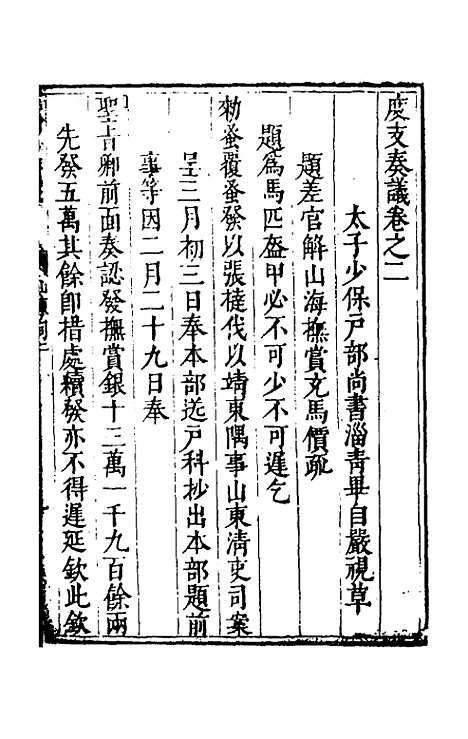 度支奏議卷之二
太子少保戶部尚書淄青畢自嚴視草
題差官解山海撫賞充馬價疏
題爲馬匹盔甲必不可少不可遲乞
勑蚤覆蚤發以張撻伐以靖東隅事山東清吏司案
呈三月初三日奉本部送戶科抄出本部題前
事等因二月二十九日奉
聖旨卿前面奏認發撫賞銀十三萬一千九百餘兩
先發五萬其餘卽措處續發亦不得遲延欽此欽